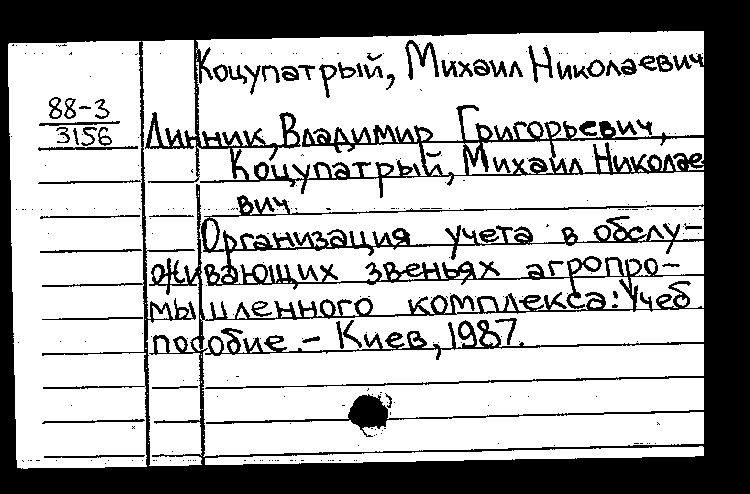 Коцупатрый, Михаил Николаевич
88-3
3156
Линник, Владимир Григорьевич,
Коцупатрый, Михаил Николае
вич
Организация учета в обслу-
живающих звеньях агропро-
мышленного комплекса: Учеб
пособие. - Киев, 1987.